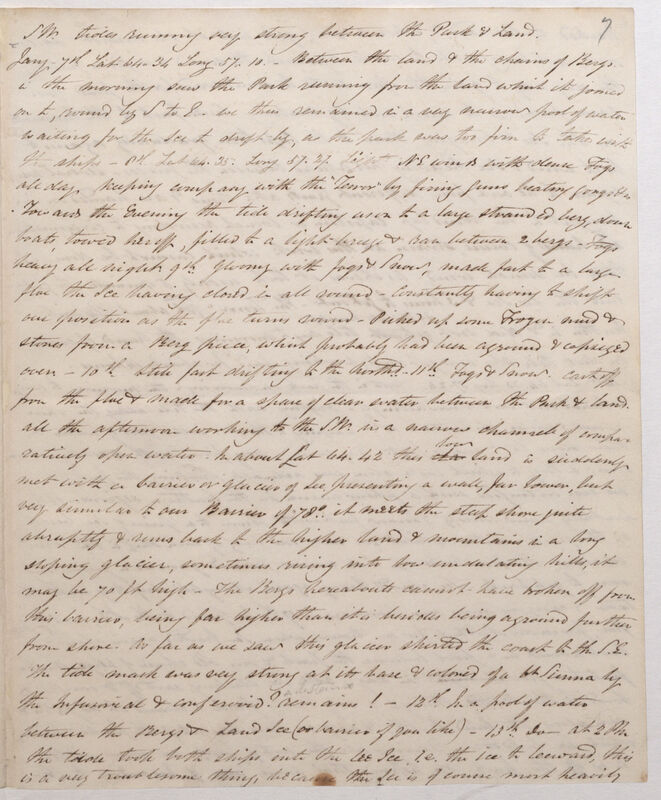 7
S.W. tides running very strong between the Pack & Land.
Jany. 7th Lat 64.34 Long 57.10. - Between the land & the chains of Bergs
in the morning saw the Pack running for the land which it joined
on to, round by S to E. - we then remained in a very narrow pool of water
waiting for the Ice to drift by, as the pack was too firm to take with
the ships - 8th Lat 64.35. Long 57.27. light N E winds with dense Fogs
all day. Keeping company with the "Terror" by firing guns beating gongs &c.
Towards the Evening the tide drifting us on to a large stranded berg, down
boats, towed her off, filled to a light breeze & ran between 2 bergs - Fogs
heavy all night 9th gloomy with fogs & snow, made fast to a large
floe the Ice having closed in all round - Constantly having to shift
our position as the floe turns round - Picked up some Frozen mud &
stones from a Berg piece, which probably had been aground & capsized
over - 10th still fast drifting to the Northd. - 11th Fogs & Snow. cast off
from the floe & made for a space of clear water between the Pack & land.
all the afternoon working to the S.W. in a narrow channel of compa-
ratively open water. In about Lat 64.42 this low land is suddenly
met with a barrier or glacier of Ice presenting a wall, far lower, but
very similar to our Barrier of 78°. it meets the steep shore quite
abruptly & runs back to the higher land & mountains in a long
sloping glacier, sometimes rising into low undulating hills, it
may be 70 ft high - The Bergs hereabouts cannot have broken off from
this barrier, being far higher than it is besides being aground further
from shore. As far as we saw this glacier skirted the coast to the S.E.
The tide mark was very strong at its base & colored of a bt Sienna by
the Infusorial & confervoid? remains! - 12th In a pool of water
between the Bergs & Land Ice (or barrier if you like) - 13th Do - at 2 PM
the tide took both ships into the lee Ice, i.e. the ice to leeward, this
is a very troublesome thing, because the Ice is of course most heavily